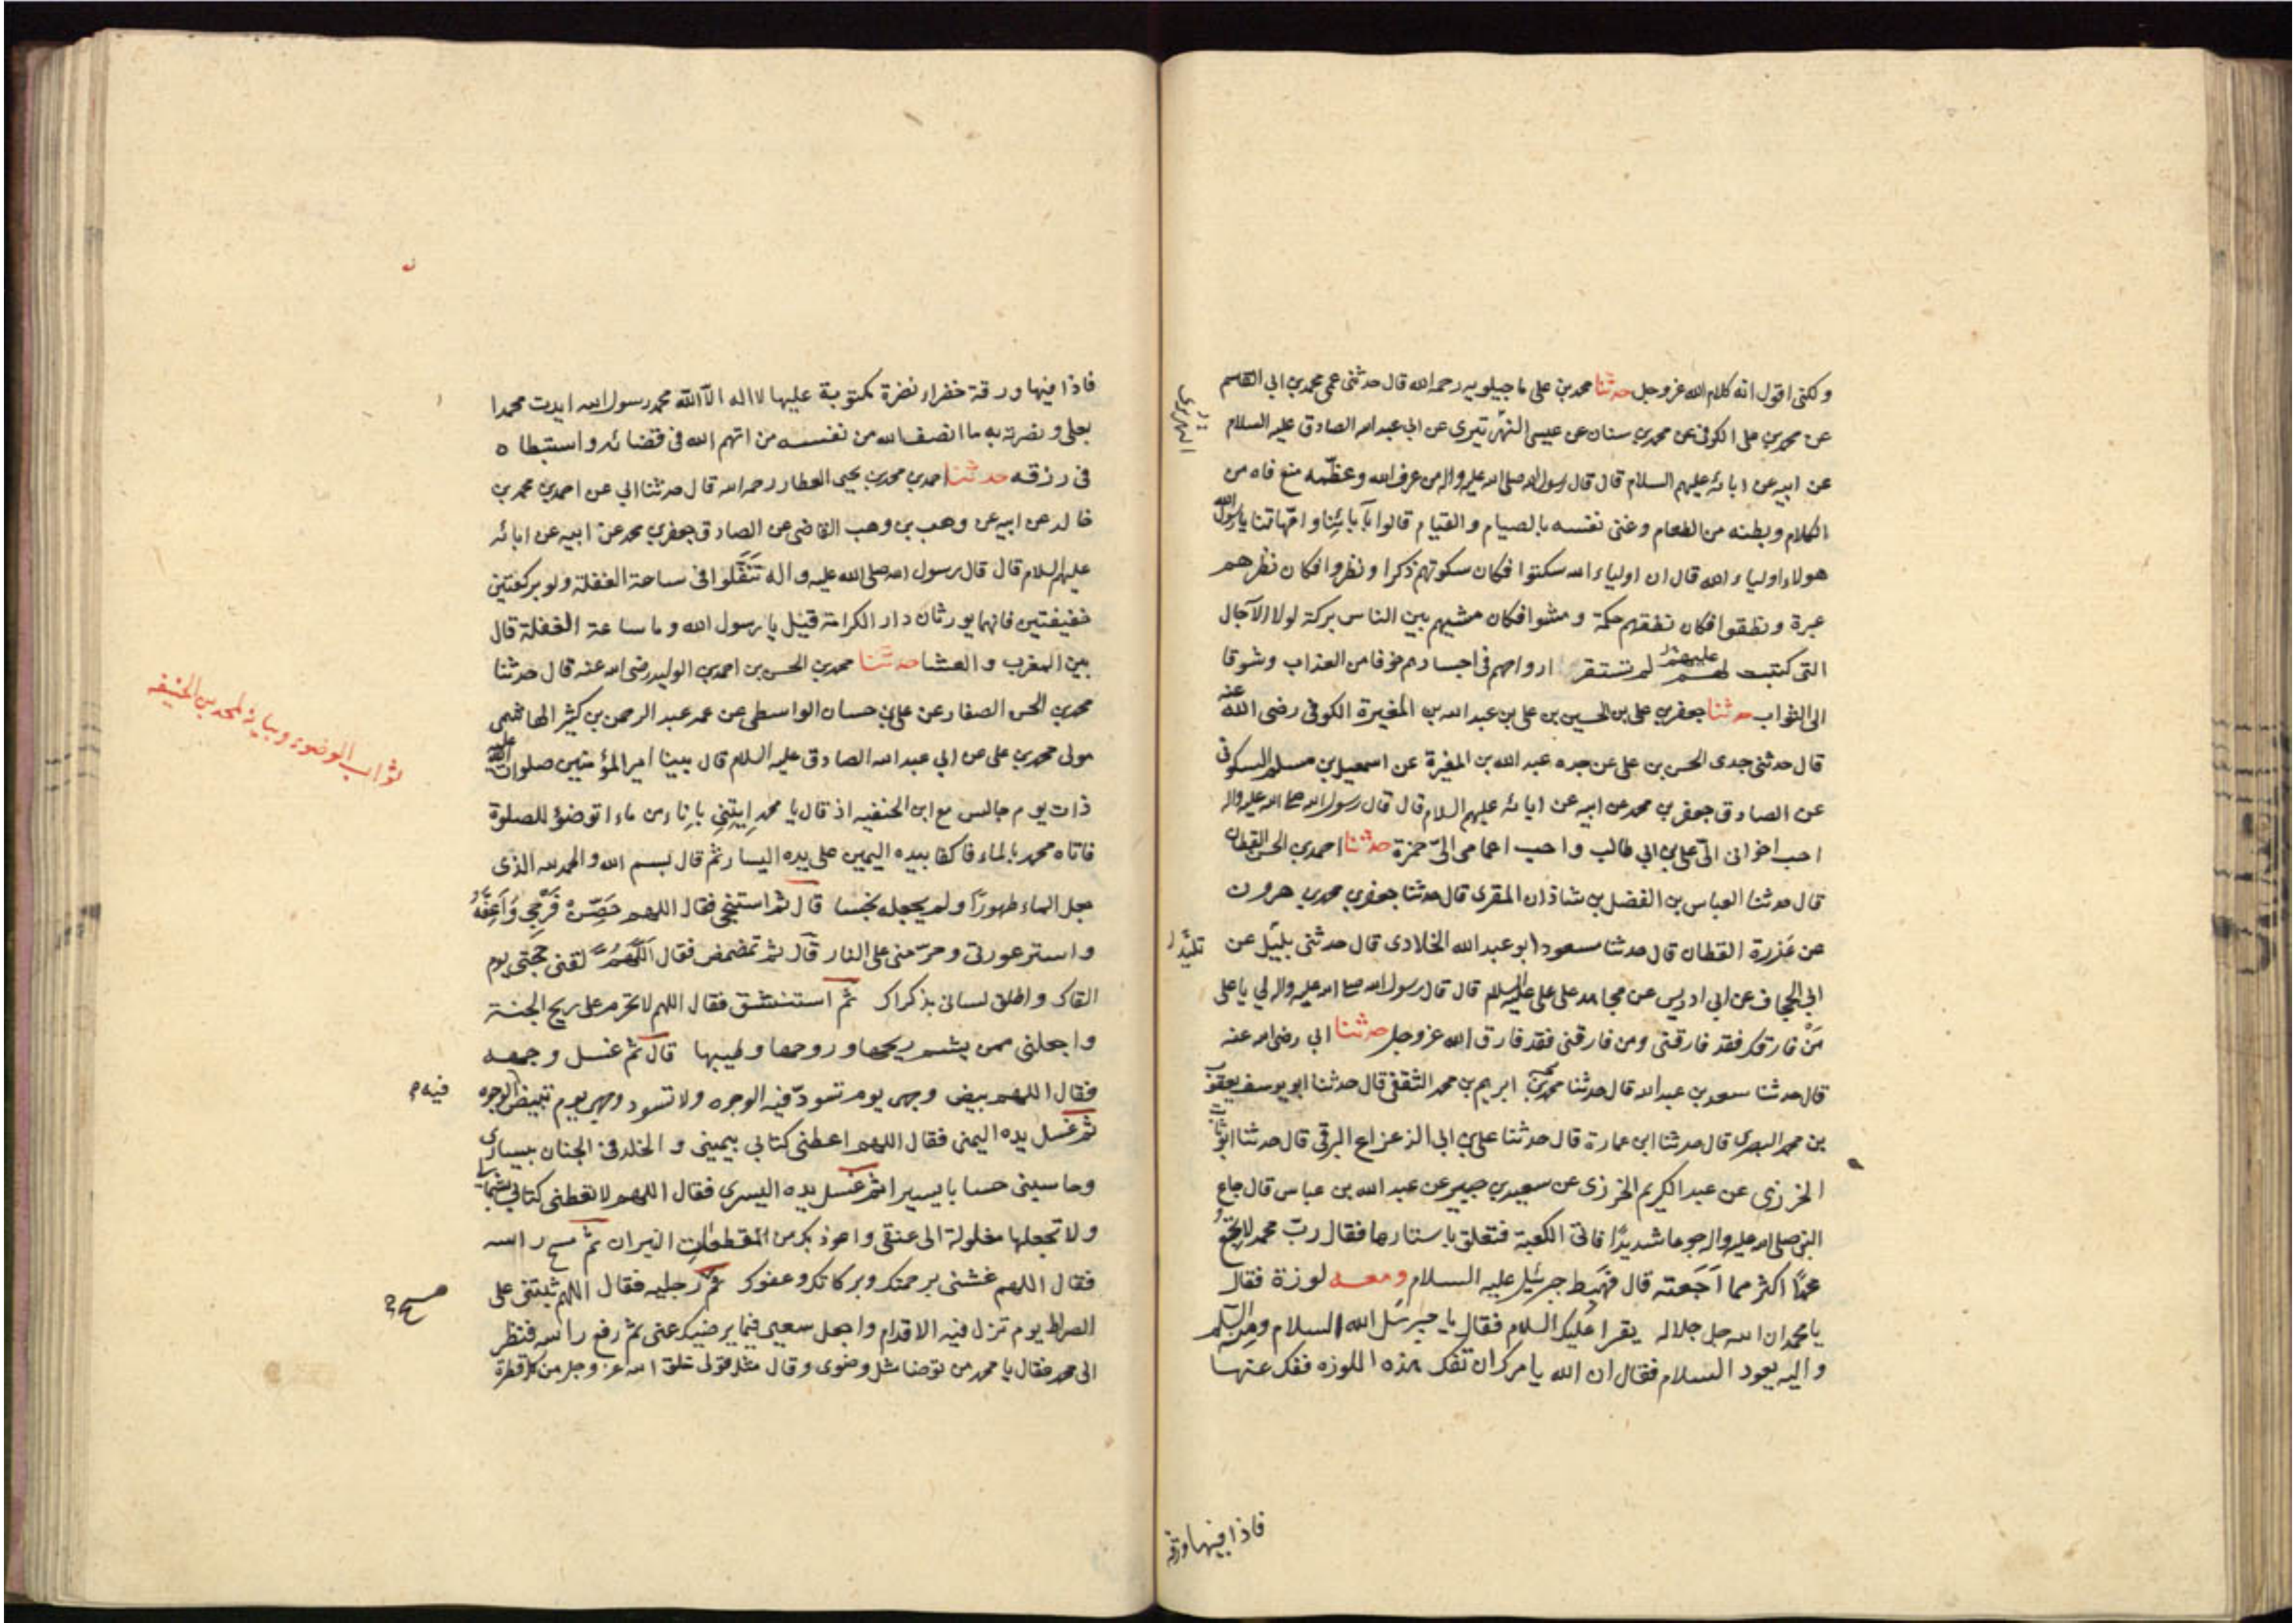 ولكنى اقول انه كلام الله عز وجل حدثنا محمد بن على ماجيلويه رحمه الله قال حدثنى عمى محمد بن ابى القاسم
عن محمد بن على الكوفى عن محمد بن سنان عن عيسى النهرتيرى عن ابى عبد الله الصادق عليه السلام
النهربيرى
عن ابيه عن ابائه عليهم السلام قال قال رسول الله صلى الله عليه واله من عرف الله وعظّمه منع فاه من
الكلام وبطنه من الطعام وعنى نفسه بالصيام والقيام قالوا بآبائنا وامّهاتنا يا رسول الله
هولاء اولياء الله قال ان اولياء الله سكتوا فكان سكوتهم ذكرا ونظروا فكان نظرهم
عبرة ونطقوا فكان نطقهم حكمة ومشوا فكان مشيهم بين الناس بركة لولا الآجال
التى كتبت لهم عليهم لم تستقر ارواحهم فى اجسادهم خوفا من العذاب وشوقا
الى الثواب حدثنا جعفر بن على بن الحسين بن على بن عبد الله بن المغيرة الكوفى رضى الله عنه
قال حدثنى جدى الحسن بن على عن جده عبد الله بن المغيرة عن اسمعيل بن مسلم السكونى
عن الصادق جعفر بن محمد عن ابيه عن ابائه عليهم السلام قال قال رسول الله صلى الله عليه واله
احب اخوانى الىّ على بن ابى طالب واحب اعمامى الىّ حمزة حدثنا احمد بن الحسن القطان
قال حدثنا العباس بن الفضل بن شاذان المقرى قال حدثنا جعفر بن محمد بن هرون
عن عزرة القطان قال حدثنا مسعود ابو عبد الله الخلادى قال حدثنى بليل عن
تليد
ابى الجحاف عن ابى ادريس عن مجاهد على على عليه السلام قال قال رسول الله صلى الله عليه واله لى يا على
من فارقك فقد فارقنى ومن فارقنى فقد فارق الله عز وجل حدثنا ابى رضى الله عنه
قال حدثنا سعد بن عبد الله قال حدثنا محمد بن ابرهيم بن محمد الثقفى قال حدثنا ابو يوسف يعقوب
بن محمد البصرى قال حدثنا ابن عمارة قال حدثنا على بن ابى الزعزاع البرقى قال حدثنا ابو ثابت
الخرزى عن عبد الكريم الخرزى عن سعيد بن جبير عن عبد الله بن عباس قال جاع
النبى صلى الله عليه واله جوعا شديدًا فاتى الكعبة فتعلق باستارها فقال ربّ محمد لا تجع
محمدًا اكثر مما اَجَعته قال فهبط جبرئيل عليه السلام ومعه لوزة فقال
يا محمد ان الله جل جلاله يقرا عليك السلام فقال يا جبرئيل الله السلام ومنه السلام
واليه يعود السلام فقال ان الله يامرك ان تفك هذه اللوزه ففك عنها
فاذا فيها ورقة
فاذا فيها ورقة خضراء نضرة مكتوبة عليها لا اله الا الله محمد رسول الله ايدت محمدا
بعلى ونصرته به ما انصف الله من نفسه من اتهم الله فى قضائه واستبطاه
فى رزقه حدثنا احمد بن محمد بن يحيى العطار رحمه الله قال حدثنا ابى عن احمد بن محمد بن
خالد عن ابيه عن وهب بن وهب القاضى عن الصادق جعفر بن محمد عن ابيه عن ابائه
عليهم السلام قال قال رسول الله صلى الله عليه واله تَنَفَّلوا فى ساعة الغفلة ولو بركعتين
خفيفتين فانهما يورثان دار الكرامة قيل يا رسول الله وما ساعة الغفلة قال
بين المغرب والعشا حدثنا محمد بن الحسن بن احمد بن الوليد رضى الله عنه قال حدثنا
محمد بن الحسن الصفار عن على بن حسان الواسطى عن عمه عبد الرحمن بن كثير الهاشمى
ثواب الوضوء وبيانه لمحمد بن الحنيفه
مولى محمد بن على عن ابى عبد الله الصادق عليه السلام قال بينا امير المؤمنين صلوات الله عليه
ذات يوم جالس مع ابن الحنفيه اذ قال يا محمد ايتنى باناء من ماء اتوضؤ للصلوة
فاتاه محمد بالماء فاكفا بيده اليمين على يده اليسار ثم قال بسم الله والحمد لله الذى
جعل الماء طهورًا ولم يجعله نجسا قال ثم استنجى فقال اللهم حَصّن فَرْجى وَاَعِفَّهُ
واستر عورتى وحرّمنى على النار قال ثم تمضمض فقال اللهم لقنى حجتى يوم
القاك واطلق لسانى بذكراك ثم استنشق فقال اللهم لا تحرم على ريح الجنة
واجعلنى ممن يشم ريحها وروحها وطيبها قال ثم غسل وجهه
فقال اللهم بيض وجهى يوم تسودّ فيه الوجوه ولا تسود وجهى يوم تبيض الوجوه
فيه م
ثم غسل يده اليمنى فقال اللهم اعطنى كتابى بيمينى والخلد فى الجنان بيسارى
وحاسبنى حسابا يسيرا ثم غسل يده اليسرى فقال اللهم لا تعطنى كتابى بشمالى
ولا تجعلها مغلولة الى عنقى واعوذ بك من مقطعات النيران ثم مسح راسه
فقال اللهم غشنى برحمتك وبركاتك وعفوك ثم رجليه فقال اللهم ثبتنى على
مسح م
الصراط يوم تزل فيه الاقدام واجعل سعيى فيما يرضيك عنى ثم رفع راسه فنظر
الى محمد فقال يا محمد من توضا مثل وضوى وقال مثل قولى خلق الله عز وجل من كل قطرة